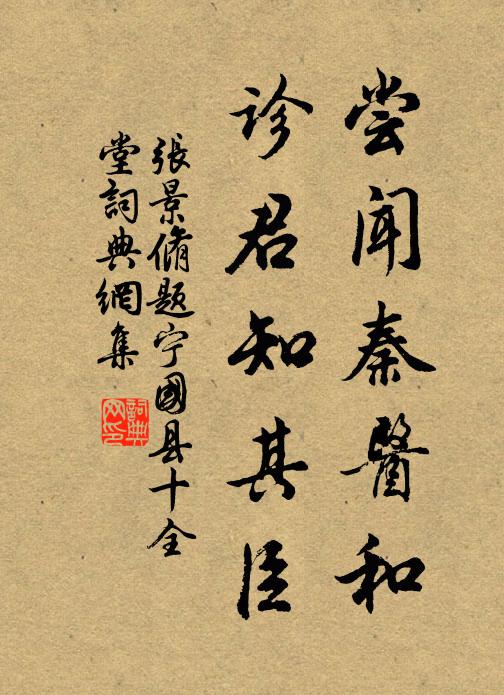 尝闻秦醫和
诊君知其臣
張景脩题宁國县十全
堂詞典網集
詞典
网印